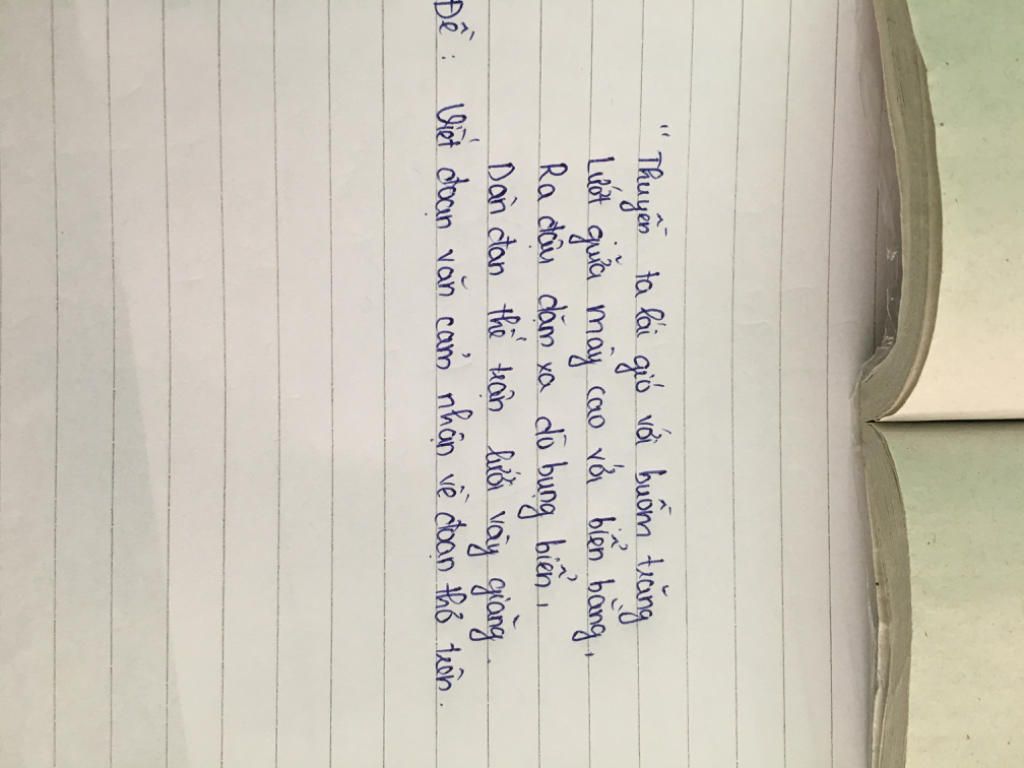 "Thuyền ta lái gió với buồm trăng
Lướt giữa mây cao với biển bằng,
Ra đậu dặm xa dò bụng biển,
Dàn đan thế trận lưới vây giăng.
Đề : Viết đoạn văn cảm nhận về đoạn thơ trên.